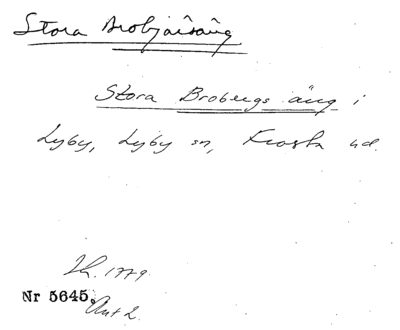 Stora Brobjärsäng
Stora Brobergs äng i
Lyby, Lyby sn, Frosta hd.
Lh. 1779
Nr 5645. Akt 2.